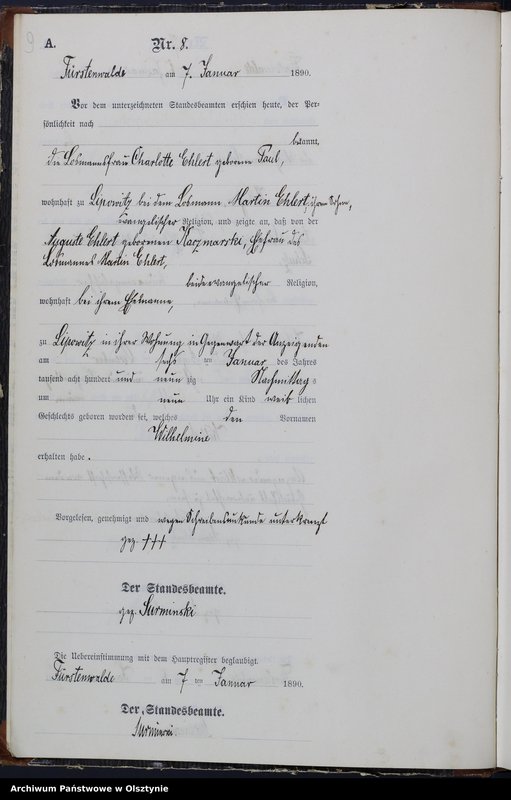 A.
Nr. 8.
Fürstenwalde am 7. Januar 1890.
Vor dem unterzeichneten Standesbeamten erschien heute, der Per-
sönlichkeit nach
bekannt,
die Losmannsfrau Charlotte Ehlert geborene Paul,
wohnhaft zu Lipowitz bei dem Losmann Martin Ehlert, ihrem Sohne,
evangelischer Religion, und zeigte an, daß von der
Auguste Ehlert geborenen Kaczmarski, Ehefrau des
Losmannes Martin Ehlert,
beide evangelischer Religion,
wohnhaft bei ihrem Ehemanne,
zu Lipowitz in ihrer Wohnung in Gegenwart der Anzeigenden
am sechs ten Januar des Jahres
tausend acht hundert und neun zig Nachmittags
um neun Uhr ein Kind weiblichen
Geschlechts geboren worden sei, welches den Vornamen
Wilhelmine
erhalten habe.
Vorgelesen, genehmigt und wegen Schreibensunkunde unterkreuzt
gez. †††
Der Standesbeamte.
gez. Surminski
Die Uebereinstimmung mit dem Hauptregister beglaubigt.
Fürstenwalde am 7 ten Januar 1890.
Der Standesbeamte.
Surminski
Archiwum Państwowe w Olsztynie